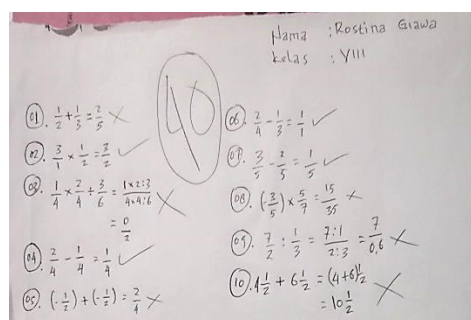 Nama : Rostina Giawa
Kelas : VIII
40
01. 1/2 + 1/3 = 2/5 ×
02. 3/1 × 1/2 = 3/2 ✓
03. 1/4 × 2/4 ÷ 3/6 = 1×2:3/4×4:6 ×
= 0/2
04. 2/4 - 1/4 = 1/4 ✓
05. (-1/2) + (-1/2) = 2/4 ×
06. 2/4 - 1/3 = 1/1 ✓
07. 3/5 - 2/5 = 1/5 ✓
08. (-3/5) × 5/7 = 15/35 ×
09. 7/2 : 1/3 = 7:1/2:3 = 7/0,6 ×
10. 4 1/2 + 6 1/2 = (4+6) 1/2 ×
= 10 1/2